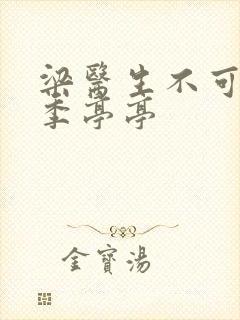 梁醫生不可
季亭亭
金寶湯